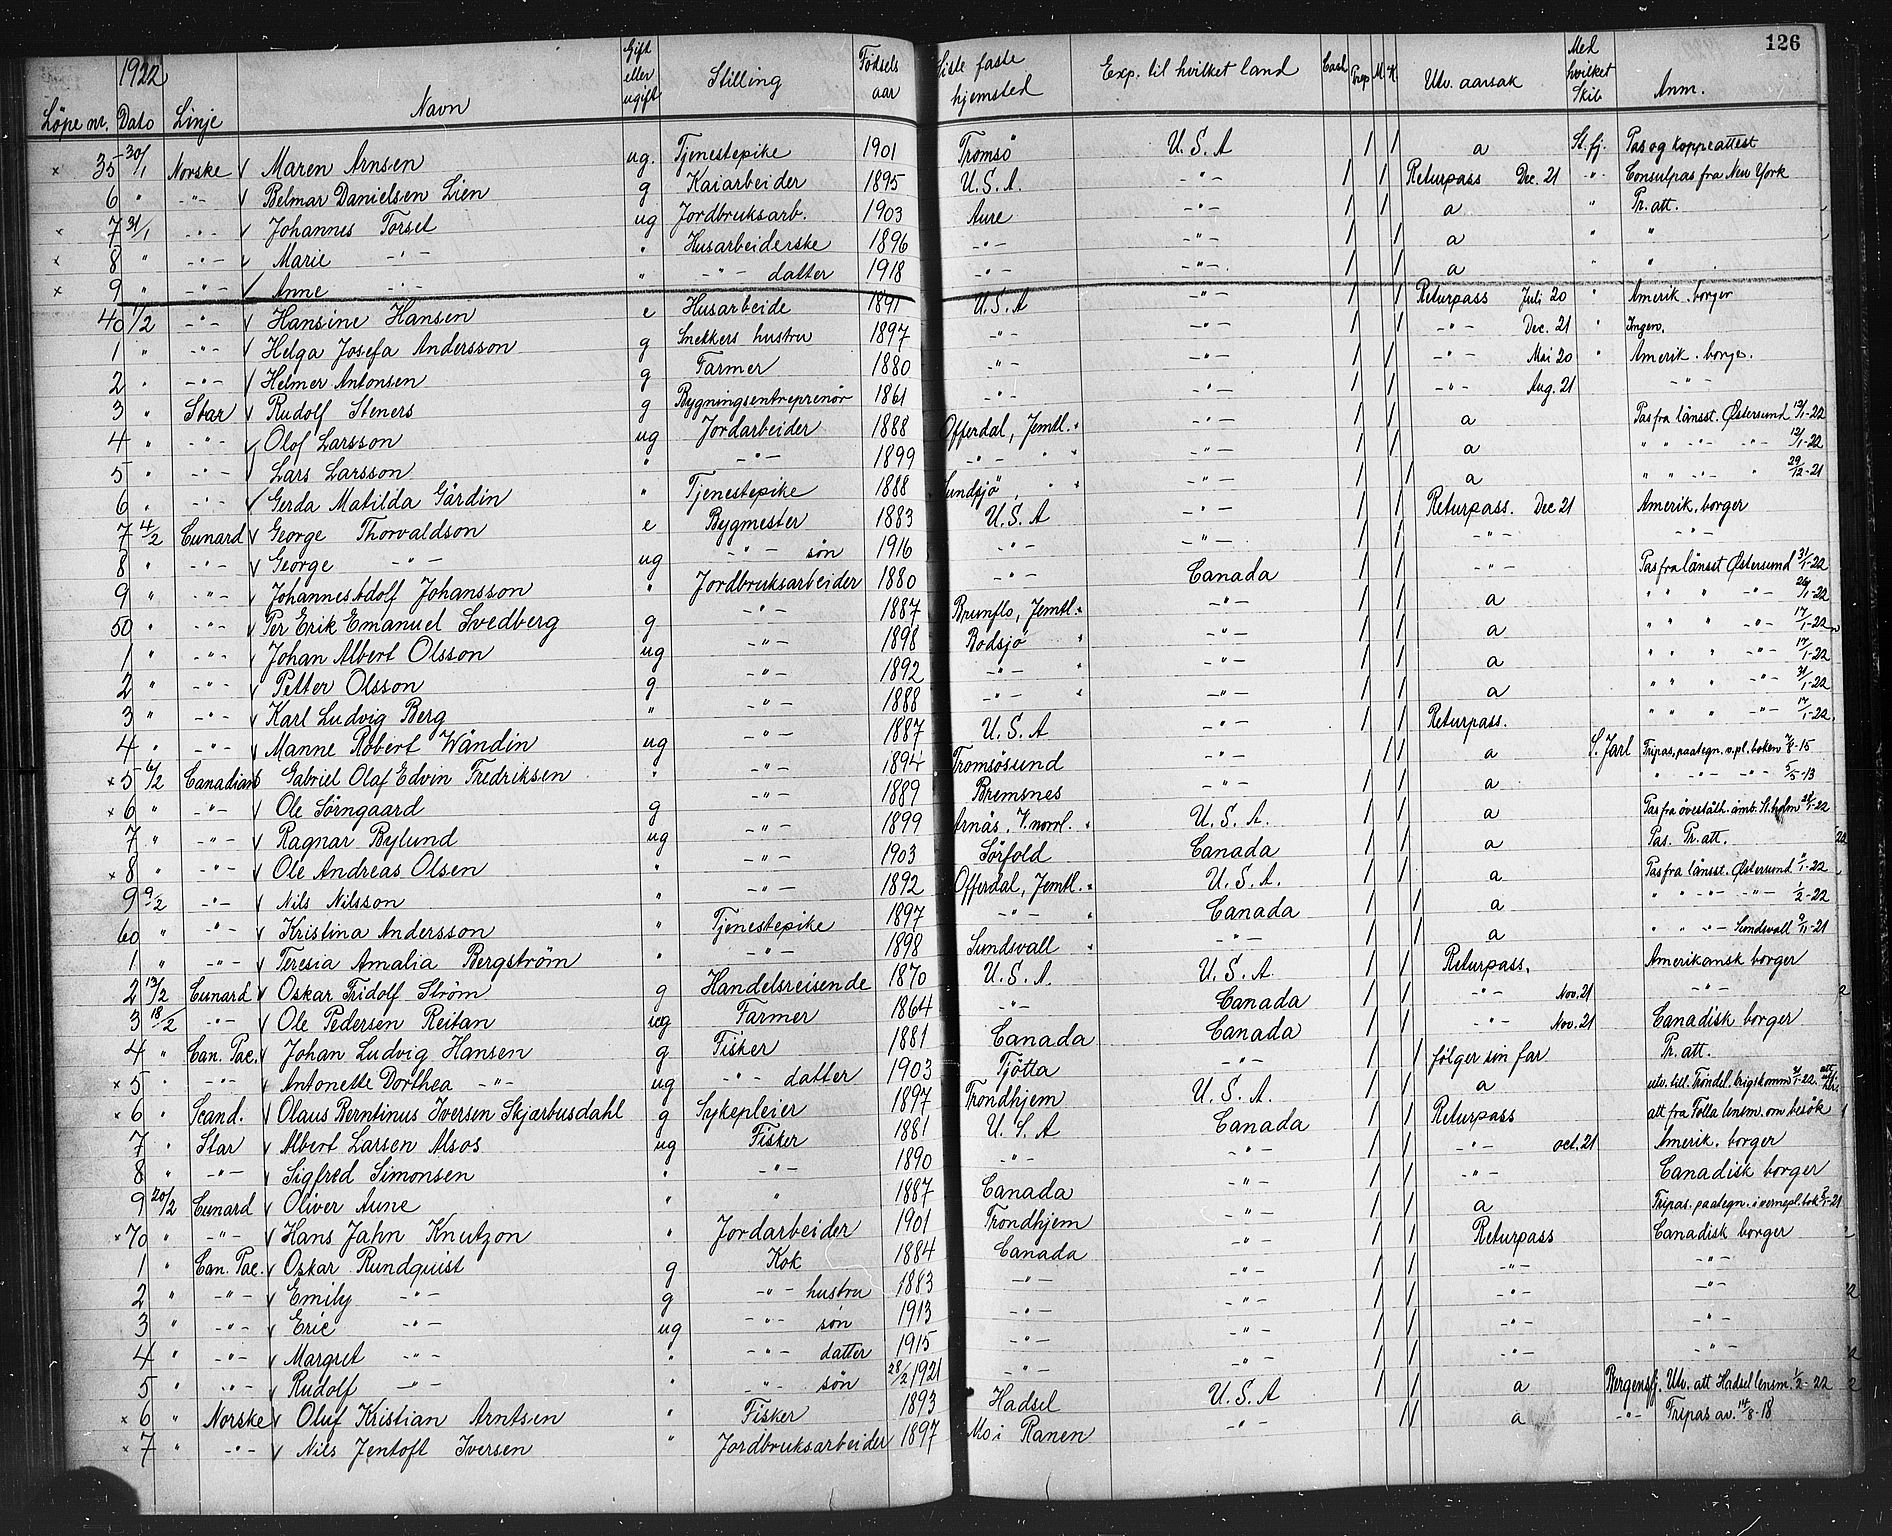 126
1922
Löpe nr. Dato Linje Navn Gift eller ugift Stilling Fødsels aar Siste faste hjemsted Exp. til hvilket land Cash Prep M K Utv. aarsak Med hvilket Skib Anm.
x 35 30/1 Norske √ Maren Arnsen ug. Tjenestepike 1901 Tromsö U.S.A / / a St. fj. Pas og koppeattest
6 " -"- √ Belmar Danielsen Lien g Kaiarbeider 1895 U.S.A. -"- / / Returpass Dec. 21 " Consulpas fra New York
x 7 31/1 -"- √ Johannes Torset ug Jordbruksarb. 1903 Aure -"- / / a " Pr. att.
x 8 " -"- √ Marie -"- " Husarbeiderske 1896 -"- -"- / / a " "
x 9 " -"- √ Anne -"- " -"- datter 1918 -"- -"- / / a " "
40 1/2 -"- √ Hansine Hansen e Husarbeide 1891 U.S.A -"- / / Returpass Juli 20 " Amerik. borger
1 " -"- √ Helga Josefa Andersson g Snekkers hustru 1897 -"- -"- / / -"- Dec. 21 " Ingen.
2 " -"- √ Helmer Antonsen g Farmer 1880 -"- -"- / / -"- Mai 20 " Amerik. borge.
3 " Star √ Rudolf Steners g Bygningsentreprenör 1861 -"- -"- / / -"- Aug. 21 -"-
4 " -"- √ Olof Larsson ug Jordarbeider 1888 Offerdal, Jemtl. -"- / / a Pas fra länsst. Østersund 12/1-22
5 " -"- √ Lars Larsson " -"- 1899 -"- " -"- / / a " " -"- -"- 12/1-22
6 " -"- √ Gerda Matilda Gårdin " Tjenestepike 1888 Sundsjö, " " -"- / / a " " -"- " 29/12-21
7 4/2 Cunard √ George Thorvaldson e Bygmester 1883 U.S.A -"- / / Returpass. Dec 21 Amerik. borger
8 " -"- √ George -"- ug -"- sön 1916 -"- -"- / / -"- -"-
9 " -"- √ Johannes Adolf Johansson " Jordbruksarbeider 1880 -"- Canada / / -"- Pas fra länsst Østersund 31/1-22
50 " -"- √ Per Erik Emanuel Svedberg g -"- 1887 Brunflo, Jemtl. -"- / / a " " " -"- 26/1-22
1 " -"- √ Johan Albert Olsson ug -"- 1898 Bodsjö " -"- / / a " " " -"- 17/1-22
2 " -"- √ Petter Olsson g -"- 1892 -"- " -"- / / a " " " -"- 17/1-22
3 " -"- √ Karl Ludvig Berg " -"- 1888 -"- " -"- / / a " " " -"- 31/1-22
4 " -"- √ Manne Robert Wåndin ug -"- 1887 U.S.A -"- / / Returpass. " " " -"- 17/1-22
x 5 6/2 Canadian √ Gabriel Olaf Edvin Fredriksen " -"- 1894 Tromsösund -"- / / a S. Jarl Fripas, paategn. v.pl. boken 7/8-15
x 6 " -"- √ Ole Sörngaard g -"- 1889 Bremsnes -"- / / a " -"- -"- 5/5-13
7 " -"- √ Ragnar Bylund ug -"- 1899 Arnäs, V.norrl. U.S.A. / / a Pas fra överståth. ämb. St.holm 28/1-22
x 8 " -"- √ Ole Andreas Olsen " -"- 1903 Sörfold Canada / / a Pas. Pr. att.
9 9/2 -"- √ Nils Nilsson " -"- 1892 Offerdal, Jemtl. U.S.A. / / a Pas fra länsst. Østersund -22
60 " -"- √ Kristina Andersson " Tjenestepike 1897 -"- " Canada / / a " " -"- -"- 1/2-22
1 " -"- √ Teresia Amalia Bergström " -"- 1898 Sundsvall " -"- / / a " " -"- Sundsvall 9/11-21
2 13/2 Cunard √ Oskar Fridolf Ström g Handelsreisende 1870 U.S.A. U.S.A. / / Returpass. Amerikansk borger
3 18/2 -"- √ Ole Pedersen Reitan ug Farmer 1864 -"- Canada / / -"- Nov. 21 -"-
4 " Can. Pac. √ Johan Ludvig Hansen g Fisker 1881 Canada Canada / / -"- Nov. 21 Canadisk borger
x 5 " -"- √ Antonette Dorthea -"- ug -"- datter 1903 Tjötta -"- / / følger sin far Pr. att.
x 6 " Scand. √ Olaus Berntinus Iversen Skjærbusdahl g Sykepleier 1897 Trondhjem U.S.A. / / a utv. till. Tröndel. krigskomm
7 " Star √ Albert Larsen Alsos ug Fisker 1881 U.S.A Canada / / Returpass att fra Folla lensm. om besök
8 " -"- √ Sigfred Simonsen " -"- 1890 -"- -"- / / -"- oct. 21 Amerik. borger
9 20/2 Cunard √ Oliver Aune " " 1887 Canada -"- / / -"- Canadisk borger
x 70 " -"- √ Hans Jahn Knutzon " Jordarbeider 1901 Trondhjem -"- / / a Fripas. paategn. i vernepl. bok -21
1 " Can. Pac. √ Oskar Rundquist g Kok 1884 Canada -"- / / Returpass Canadisk borger
2 " -"- √ Emily -"- g -"- hustru 1883 -"- -"- / / -"- -"-
3 " -"- √ Eric -"- ug -"- sön 1913 -"- -"- / / -"- -"-
4 " -"- √ Margret -"- " -"- datter 1915 -"- -"- / / -"- -"-
5 " -"- √ Rudolf -"- " -"- sön 28/2 1921 -"- -"- / / -"- -"-
x 6 " Norske √ Oluf Kristian Arntsen " Fisker 1893 Hadsel U.S.A / / a Bergensfj. Utv. att Hadsel lensm. 1/2-22
x 7 " -"- √ Nils Jentoft Iversen " Jordbruksarbeider 1897 Mo i Ranen -"- / / a -"- Fripas av. 14/8-18